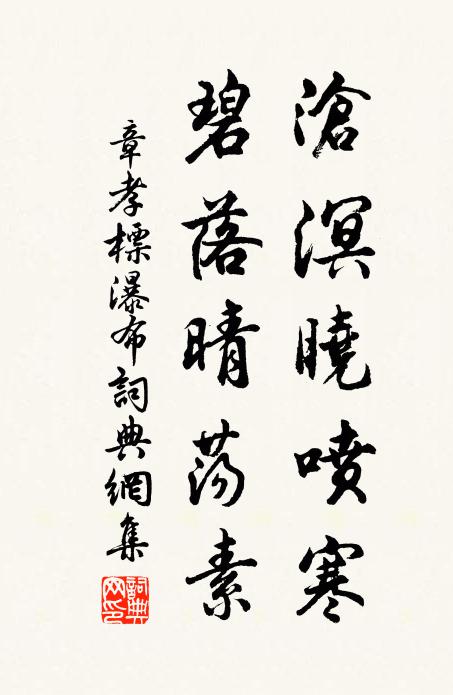 滄溟曉噴寒
碧落晴荡素
章孝標瀑布詞典網集
詞典網印